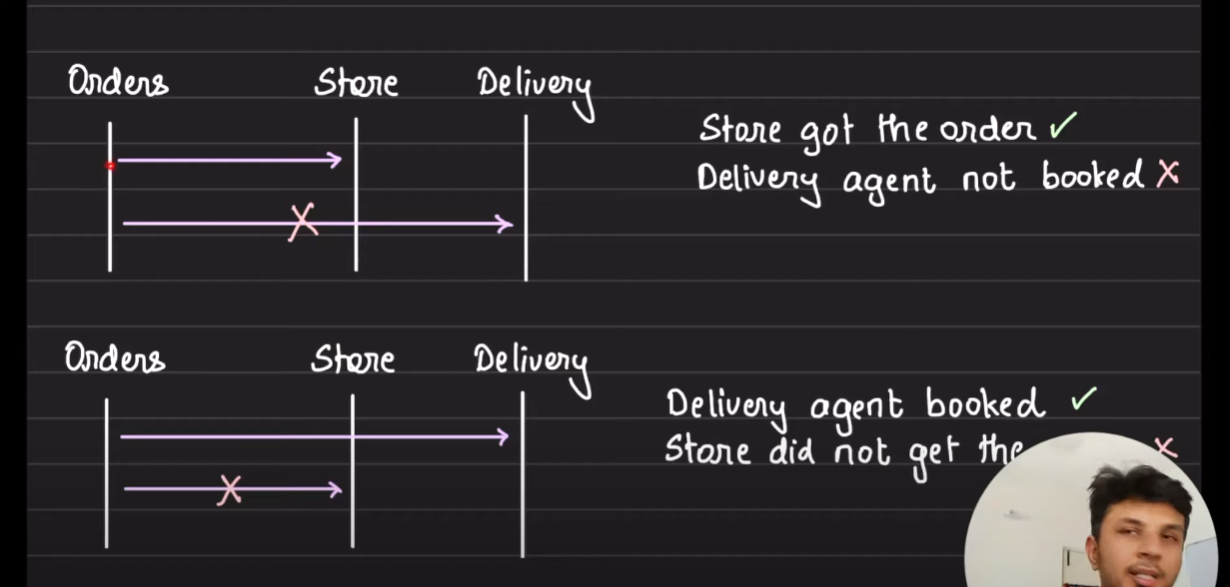 Orders Store Delivery
Store got the order ✓
Delivery agent not booked X
Orders Store Delivery
Delivery agent booked ✓
Store did not get the X